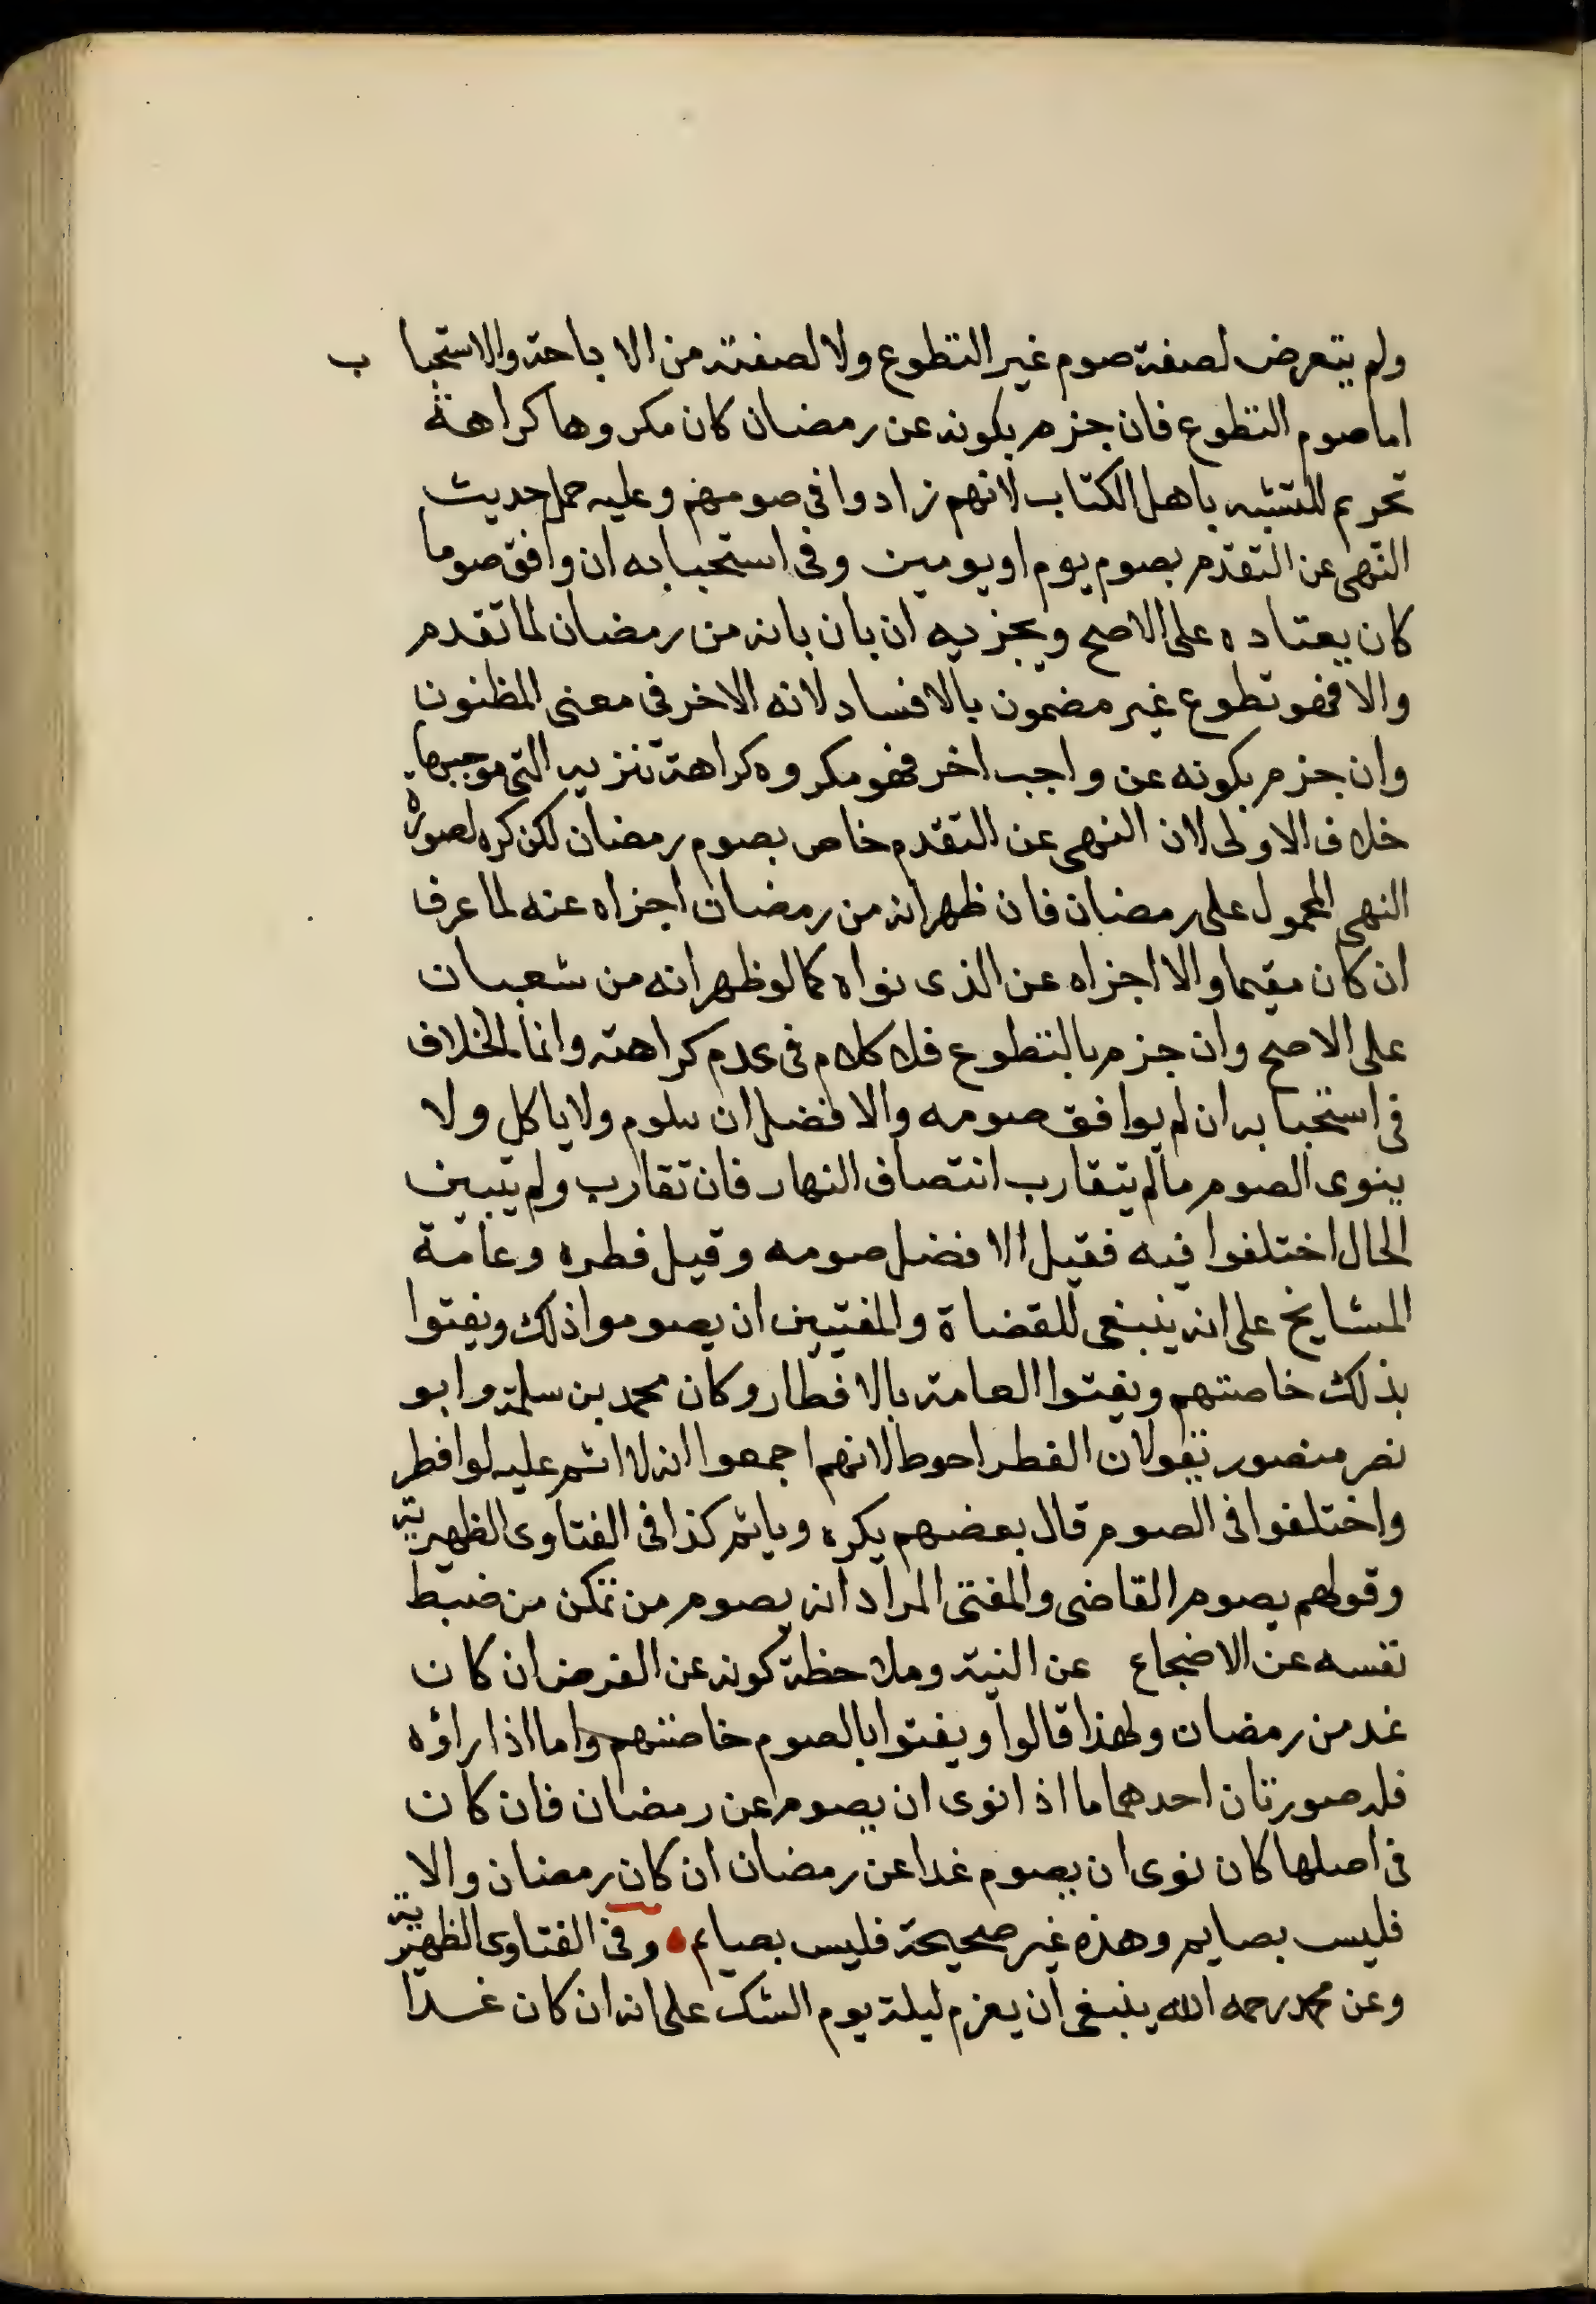 ولم يتعرض لصفة صوم غير التطوع ولا لصفته من الاباحة والاستحباب
اما صوم التطوع فان جزم بكونه عن رمضان كان مكروها كراهة
تحريم للتشبه باهل الكتاب لانهم زادوا في صومهم وعليه حمل حديث
النهى عن التقدم بصوم يوم او يومين وفى استحبابه ان وافق صوما
كان يعتاده على الاصح ويجزيه ان بان بانه من رمضان لما تقدم
والا فهو تطوع غير مضمون بالافساد لانه الاخر فى معنى المظنون
وان جزم بكونه عن واجب اخر فهو مكروه كراهة تنزيه التى موجبها
خلاف الاولى لان النهى عن التقدم خاص بصوم رمضان لكن كره لصورة
النهى المحمول على رمضان فان ظهر انه من رمضان اجزاه عنه لما عرف
ان كان مقيما والا اجزاه عن الذى نواه كما لو ظهر انه من شعبان
على الاصح وان جزم بالتطوع فلا كلام فى عدم كراهته وانما الخلاف
فى استحبابه ان لم يوافق صومه والافضل ان يتلوم ولا ياكل ولا
ينوى الصوم ما لم يتقارب انتصاف النهار فان تقارب ولم يتبين
الحال اختلفوا فيه فقيل الافضل صومه وقيل فطره وعامة
المشايخ على انه ينبغى للقضاة والمفتيين ان يصوموا ذلك ويفتوا
بذلك خاصتهم ويفتوا العامة بالافطار وكان محمد بن سلمة وابو
نصر منصور يقولان الفطر احوط لانهم اجمعوا انه لا اثم عليه لو افطر
واختلفوا فى الصوم قال بعضهم يكره وياثم كذا فى الفتاوى الظهيرية
وقولهم يصوم القاضى والمفتى المراد انه يصوم من تمكن من ضبط
نفسه عن الاضجاع عن النية وملاحظة كونه عن الفرض ان كان
غد من رمضان ولهذا قالوا ويفتوا بالصوم خاصتهم واما اذا راؤه
فله صورتان احدهما ما اذا نوى ان يصوم عن رمضان فان كان
فى اصلها كان نوى ان يصوم غدا عن رمضان ان كان رمضان والا
فليس بصايم وهذه غير صحيحة فليس بصيام وفى الفتاوى الظهيرية
وعن محمد رحمه الله ينبغى ان يعزم ليلة يوم الشك على انه ان كان غدا